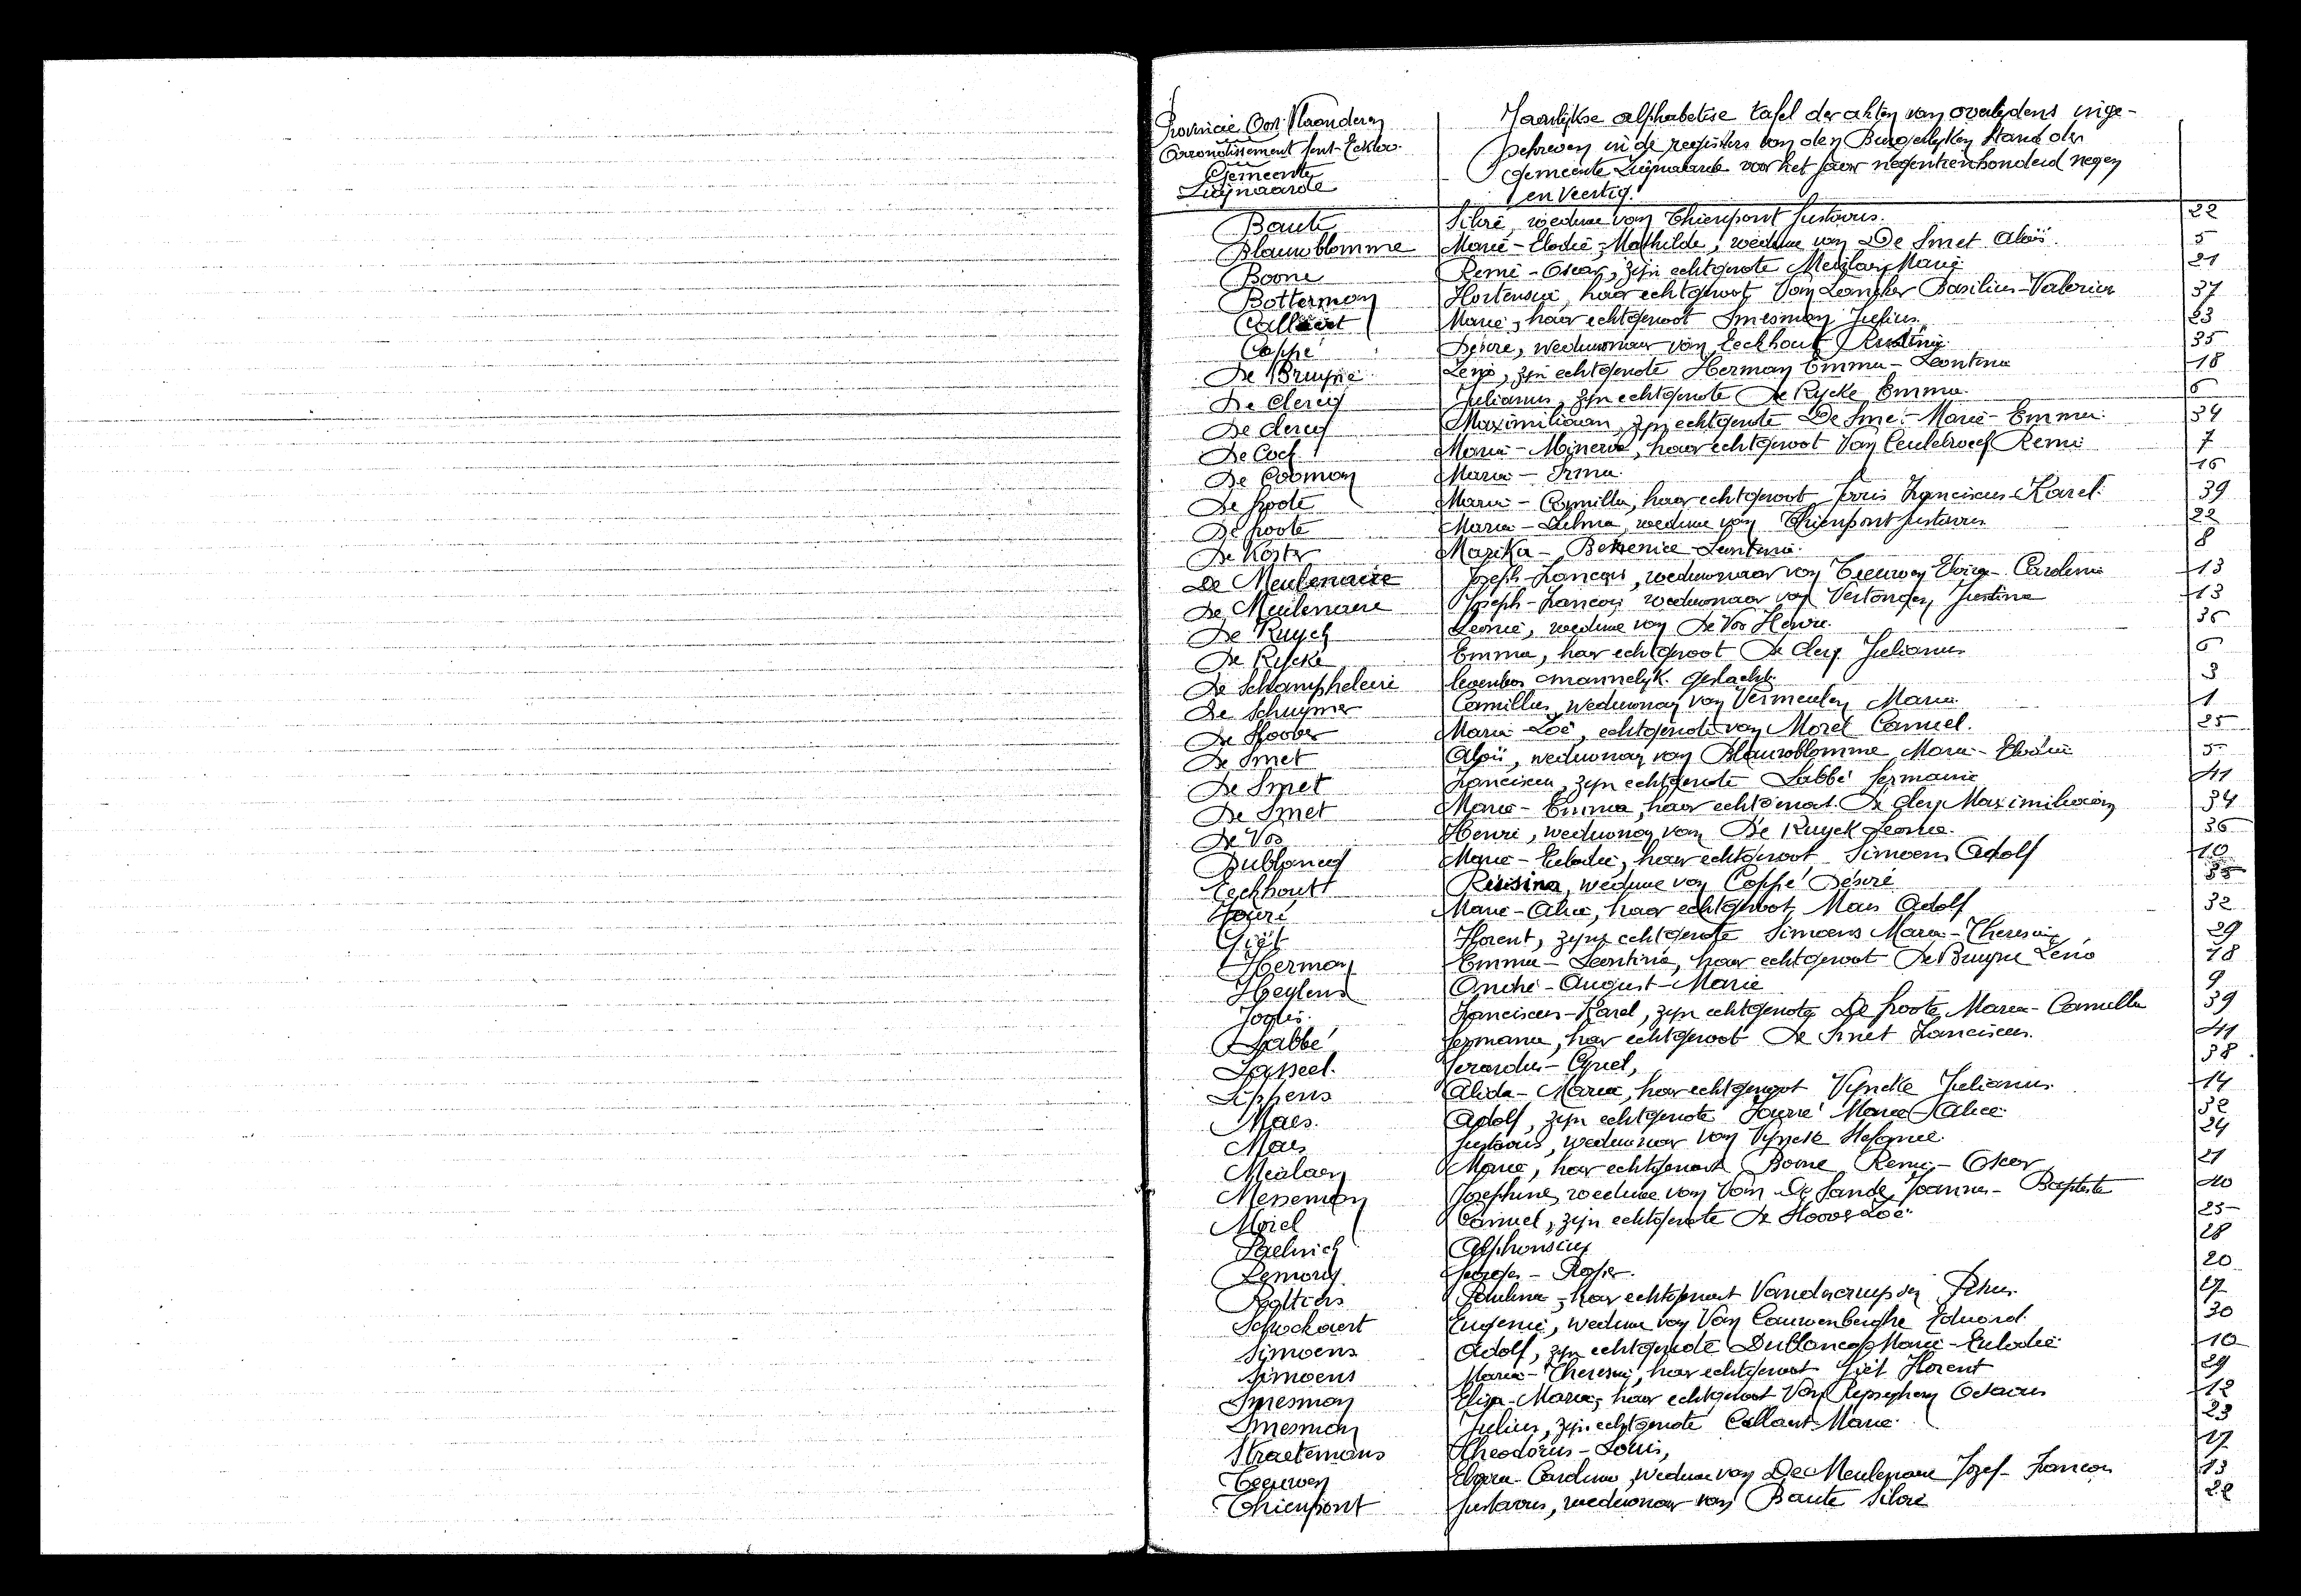 Provincie Oost-Vlaanderen
Arrondissement Gent-Eekloo.
Gemeente
Zwijnaarde
Jaarlijkse alphabetise tafel der akten van overlijdens inge-
schreven in de registers van den Burgerlijken Stand der
Gemeente Zwijnaarde voor het jaar negentienhonderd negen
en veertig.
Baute Silvie, weduwe van Thienpont Gustavus. 22
Blauwblomme Marie-Elodie-Mathilde, weduwe van De Smet Aloïs. 5
Boone Remi-Oscar, zijn echtgenote Meulaen Marie 21
Botterman Hortensia, haar echtgenoot Van Lancker Basilius-Valerius 37
Callant Marie, haar echtgenoot Smesman Julius. 23
Coppé Désiré, weduwnaar van Eeckhout 35
De Bruyne Zéno, zijn echtgenote Herman Emma-Leontina 18
De Clercq Julianus, zijn echtgenote De Rycke Emma. 6
De Clercq Maximiliaan, zijn echtgenote De Smet Marie-Emma. 34
De Cock Maria-Minerva, haar echtgenoot Van Ceulebroeck Remi 7
De Cooman Maria-Irma. 16
De Groote Maria-Camilla, haar echtgenoot Joris Franciscus-Karel. 39
De Groote Maria-Zulma, weduwe van Thienpont Gustavus 22
De Koster Marika-Berenice-Leontina. 8
De Meulenaere Joseph-François, weduwnaar van Teeuwen Elvira-Carolina 13
De Meulenaere Joseph-François, weduwnaar van Verstongen Justina 13
De Ruyck Leonie, weduwe van De Vos Henri. 36
De Rycke Emma, haar echtgenoot De Clercq Julianus 6
De Schampheleire levenloos mannelijk geslacht. 3
De Schuymer Camillus, weduwnaar van Vermeulen Maria. 1
De Sloover Maria-Zoë, echtgenote van Morel Camiel. 25
De Smet Aloïs, weduwnaar van Blauwblomme Marie-Elodie 5
De Smet Franciscus, zijn echtgenote Labbé Germaine 41
De Smet Maria-Emma, haar echtgenoot De Clercq Maximiliaan 34
De Vos Henri, weduwnaar van De Ruyck Leonie. 36
Dublancq Marie-Eulodie, haar echtgenoot Simoens Adolf 10
Eeckhout weduwe van Coppé Désiré 35
Fouré Marie-Alice, haar echtgenoot Maes Adolf 32
Giët Florent, zijn echtgenote Simoens Maria-Theresia 29
Herman Emma-Leontina, haar echtgenoot De Bruyne Zéno 18
Heylens André-August-Marie 9
Joris. Franciscus-Karel, zijn echtgenote De Groote Maria-Camilla 39
Labbé Germaine, haar echtgenoot De Smet Franciscus. 41
Lasseel. Gerardus-Cyriel, 38
Lippens Alida-Maria, haar echtgenoot Vyncke Julianus. 14
Maes. Adolf, zijn echtgenote Fouré Marie-Alice. 32
Maes Gustavus, weduwnaar van Vyncke Stefanie. 24
Meulaen Marie, haar echtgenoot Boone Remi-Oscar, 21
Messeman Josephine, weduwe van Van De Sande Joannes-Baptiste 40
Morel Camiel, zijn echtgenote De Sloover Zoë. 25
Paelinck Alphonsius 28
Remory Georges-Roger. 20
Roltiers Paulina, haar echtgenoot Petrus. 27
Schockaert Eugenie, weduwe van Van Cauwenberghe Eduard. 30
Simoens Adolf, zijn echtgenote Dublancq Marie-Eulodie. 10
Simoens Maria-Theresia, haar echtgenoot Giët Florent 29
Smesman Elisa-Maria, haar echtgenoot Van Octavus 12
Smesman Julius, zijn echtgenote Callant Marie. 23
Straetemans Theodorus-Louis, 17
Teeuwen Elvira-Carolina, weduwe van De Meulenaere Jozef-François 13
Thienpont Gustavus, weduwnaar van Baute Silvie 22